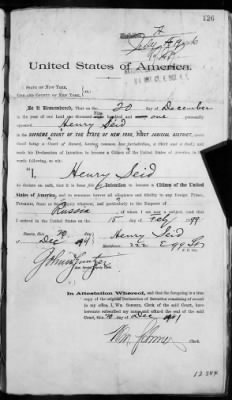 126
United States of America.
STATE OF NEW YORK,
CITY AND COUNTY OF NEW YORK, } ss.:
Be it Remembered, That on the 20 day of December
in the year of our Lord one thousand hundred and one personally
Henry Seid
SUPREME COURT OF THE STATE OF NEW YORK, FIRST JUDICIAL DISTRICT,
Court being a Court of Record, having common law jurisdiction, a Clerk and a Seal,
with his Declaration of Intention to become a Citizen of the United States of America, in the
words following, to wit:
"I, Henry Seid
do declare on oath, that it is bona fide my Intention to become a Citizen of the United
States of America, and to renounce forever all allegiance and fidelity to any foreign Prince,
Potentate, State or Sovereignty whatever, and particularly to the Emperor of
Russia of whom I am a subject, and that I
arrived in the United States on the 15 day of Feb 1899
Sworn, this 20 day of
Dec 1901 Henry Seid
Residence
In Attestation Whereof, and that the foregoing is a true
copy of the original Declaration of Intention remaining of record
in my office, I, Wm. Sohmer, Clerk of the said Court, have
hereunto subscribed my name and affixed the seal of the
said Court, this 20 day of Dec 1901
Wm Sohmer Clerk.